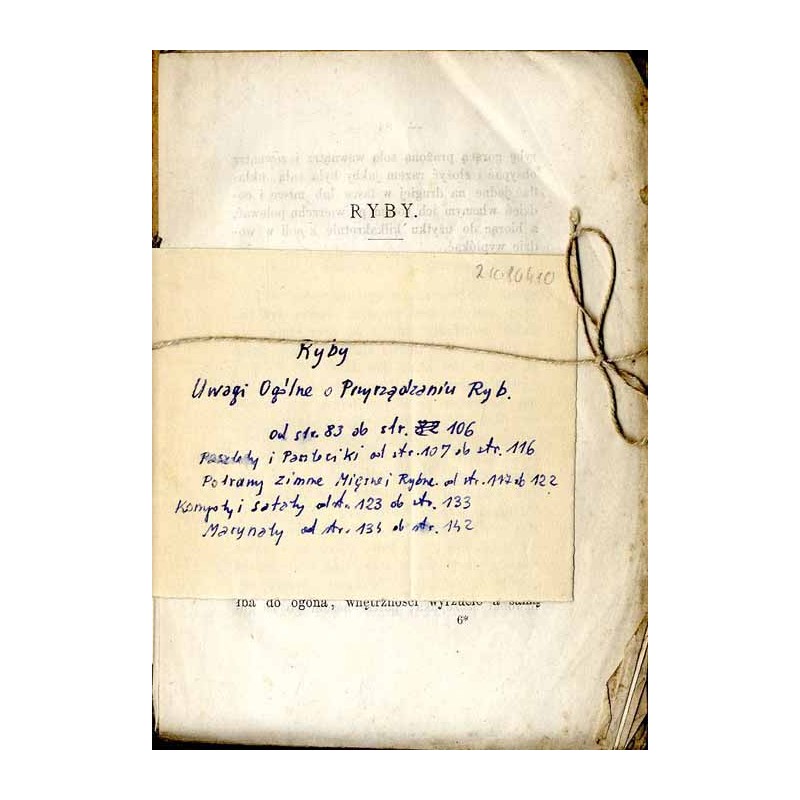 RYBY.
21010410
Ryby
Uwagi Ogólne o Przyrządzaniu Ryb.
od str. 83 do str. 106
Pasztety i Paszteciki od str. 107 do str. 116
Potrawy zimne Mięsne i Rybne. od str. 117 do 122
Kompoty i sałaty od str. 123 do str. 133
Marynaty od str. 134 do str. 142
łba do ogona, wnętrzności wyrzucić a samą
6*